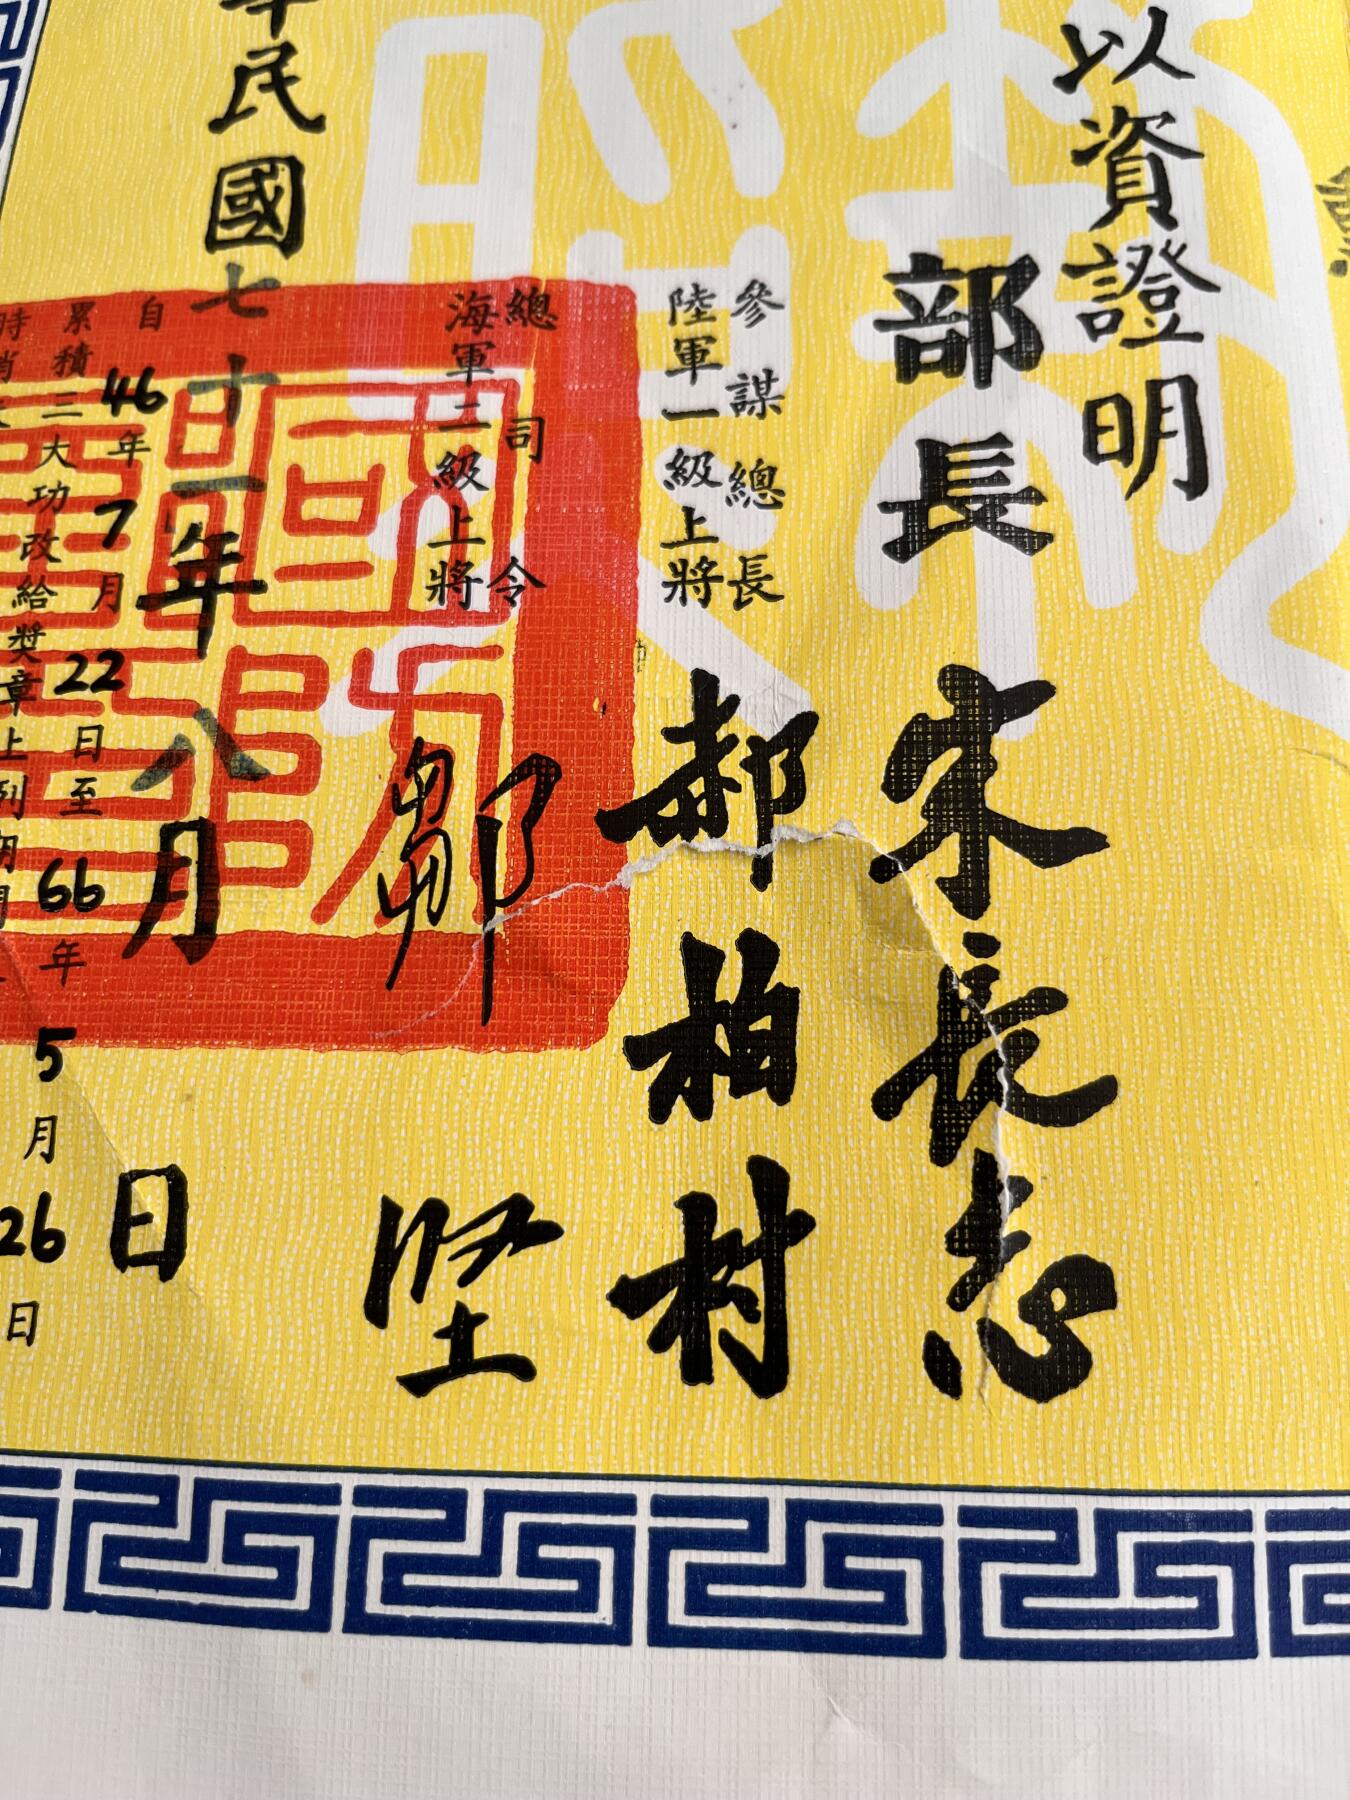 以資證明
部長 宋長志
參謀總長
陸軍一級上將 郝柏村
總司令
海軍二級上將 鄒堅
民國七十一年八月 日
自46年7月22日至66年5月26日
累積二大功改給獎章上列